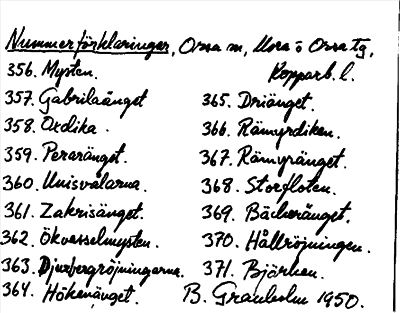 Nummerförklaringar, Orsa sn, Mora o Orsa tg,
Kopparb. l.
356. Mysten.
357. Gabrilaänget
358. Oxdika.
359. Peraränget.
360. Unisvålarna.
361. Zakrisänget.
362. Ökvasselmysten.
363. Djurbergröjningarna.
364. Hökenänget.
365. Driänget.
366. Rämyrdiken.
367. Rämyränget.
368. Storfloten.
369. Bäckeränget.
370. Hållröjningen.
371. Björken.
B. Granholm 1950.